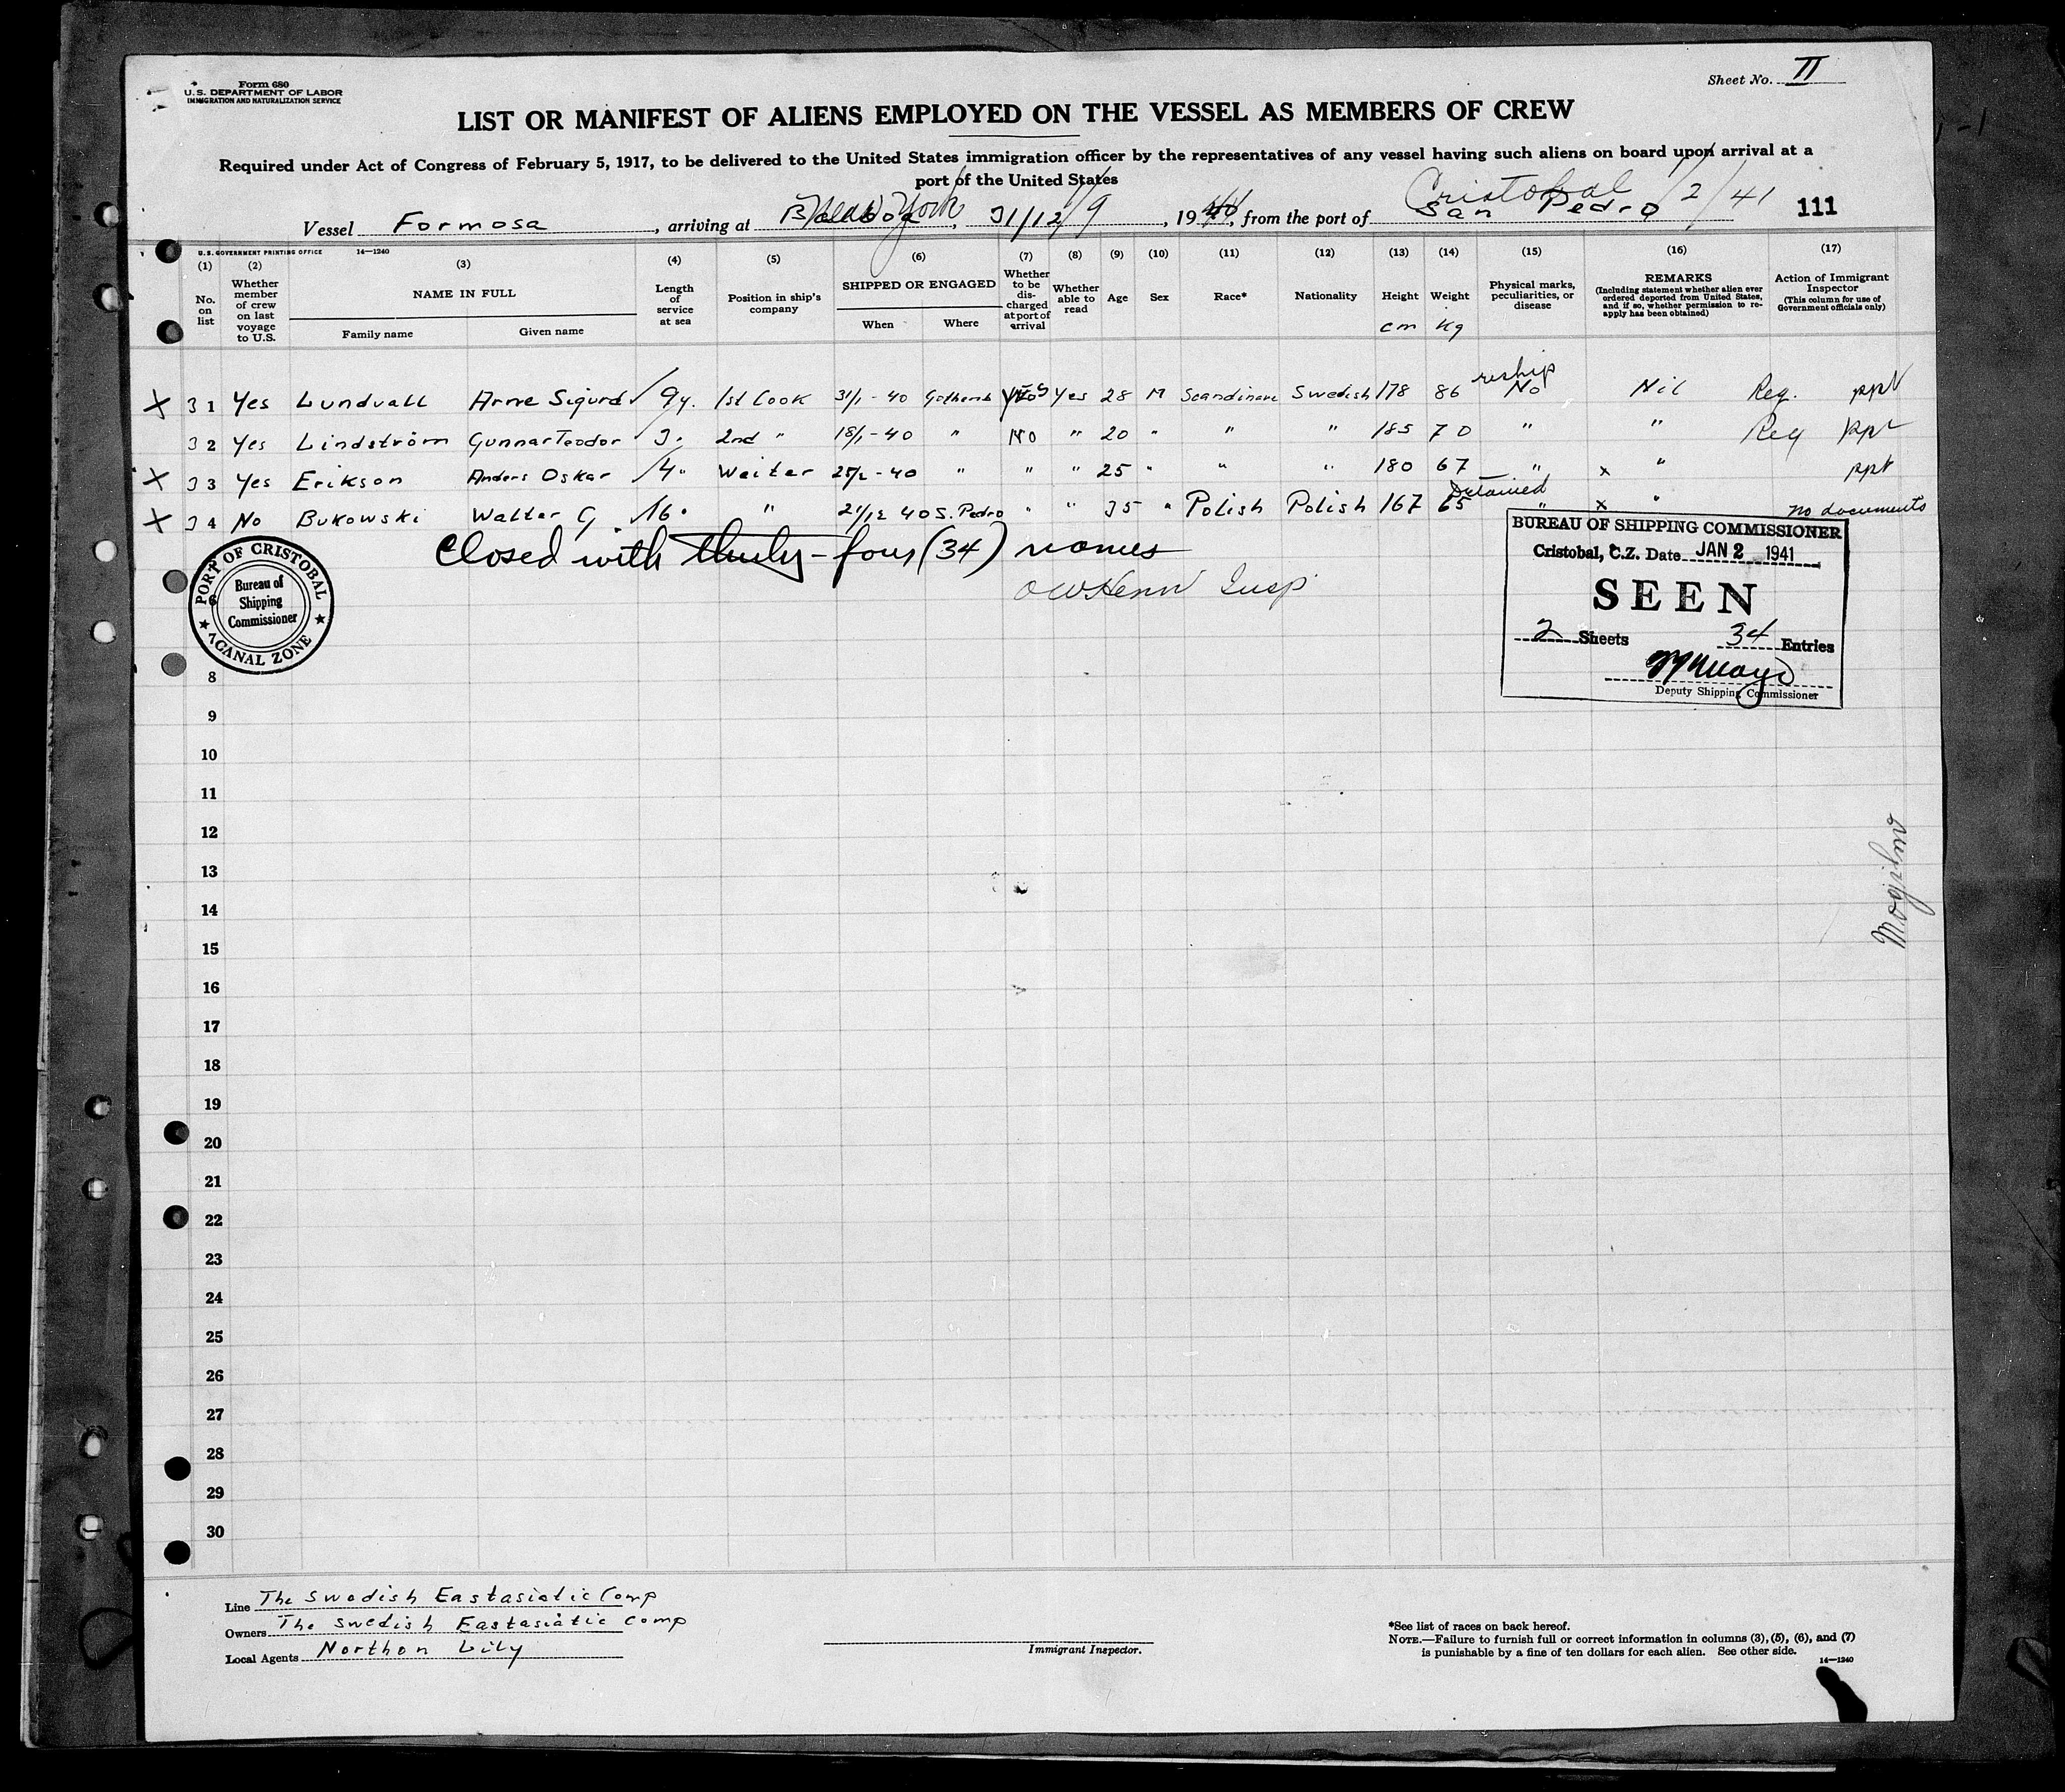 Form 680
U. S. DEPARTMENT OF LABOR
IMMIGRATION AND NATURALIZATION SERVICE
Sheet No. II
LIST OR MANIFEST OF ALIENS EMPLOYED ON THE VESSEL AS MEMBERS OF CREW
Required under Act of Congress of February 5, 1917, to be delivered to the United States immigration officer by the representatives of any vessel having such aliens on board upon arrival at a
port of the United States
New York 1/9 Cristobal 1/2/41
Vessel Formosa, arriving at Balboa, 31/12, 1940, from the port of San Pedro 111
U. S. GOVERNMENT PRINTING OFFICE 14—1240
(1) (2) (3) (4) (5) (6) (7) (8) (9) (10) (11) (12) (13) (14) (15) (16) (17)
No. on list
Whether member of crew on last voyage to U.S.
NAME IN FULL
Family name Given name
Length of service at sea
Position in ship's company
SHIPPED OR ENGAGED
When Where
Whether to be discharged at port of arrival
Whether able to read
Age
Sex
Race*
Nationality
Height
cm
Weight
Kg
Physical marks, peculiarities, or disease
REMARKS
(Including statement whether alien ever ordered deported from United States, and if so, whether permission to reapply has been obtained)
Action of Immigrant Inspector
(This column for use of Government officials only)
reship
X 31 Yes Lundvall Arne Sigurd 9y. 1st Cook 31/1-40 Gothenb Yes Yes 28 M Scandinav Swedish 178 86 No Nil Reg. ppt
32 Yes Lindström Gunnar Teodor 3" 2nd " 18/1-40 " No " 20 " " " 185 70 " " Reg ppt
X 33 Yes Erikson Anders Oskar 4" Waiter 25/2-40 " " " 25 " " " 180 67 " x " ppt
Detained
X 34 No Bukowski Walter G. 16" " 21/12 40 S. Pedro " " 35 " Polish Polish 167 65 " x " no documents
Closed with thirty-four (34) names
Insp.
PORT OF CRISTOBAL
Bureau of Shipping Commissioner
★ CANAL ZONE ★
BUREAU OF SHIPPING COMMISSIONER
Cristobal, C.Z. Date JAN 2 1941
SEEN
2 Sheets 34 Entries
Deputy Shipping Commissioner
6
7
8
9
10
11
12
13
Mogilno
14
15
16
17
18
19
20
21
22
23
24
25
26
27
28
29
30
Line The Swedish Eastasiatic Comp
Owners The Swedish Eastasiatic Comp
Local Agents Northon Lily
Immigrant Inspector.
*See list of races on back hereof.
NOTE.—Failure to furnish full or correct information in columns (3), (5), (6), and (7)
is punishable by a fine of ten dollars for each alien. See other side.
14—1240